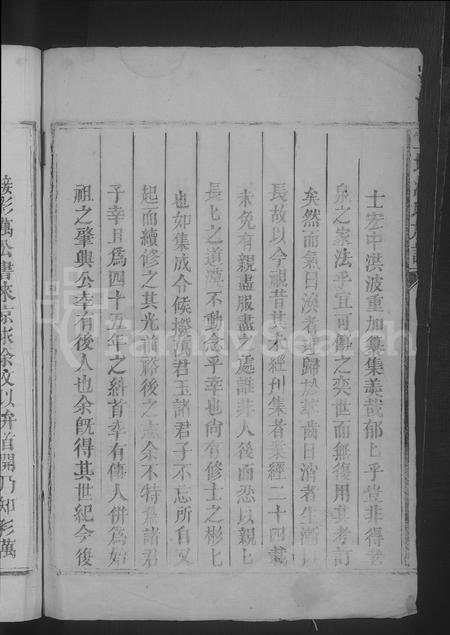 士宏中洪波重加纂集美哉郁匕乎豈非得老
泉之家法乎宜可傳之奕世而無復用其考訂
矣然而氣日渙者歸於萃齒日消者生漸以
長故以今視昔其未經刊集者業經二十四載
未免有親盡服盡之處誰非人後而忍以親匕
長匕之道漠不動念乎幸也尚有修士之彬匕
也如集成今候撥萬君玉諸君子不忘所自又
起而續修之其光前裕後之志余不特為諸君
子幸且為四十五年之斜首幸有傳人併為始
祖之肇興公幸有後人也余旣得其世紀今後
接彩萬公書來京求余文以弁首開乃知彩萬